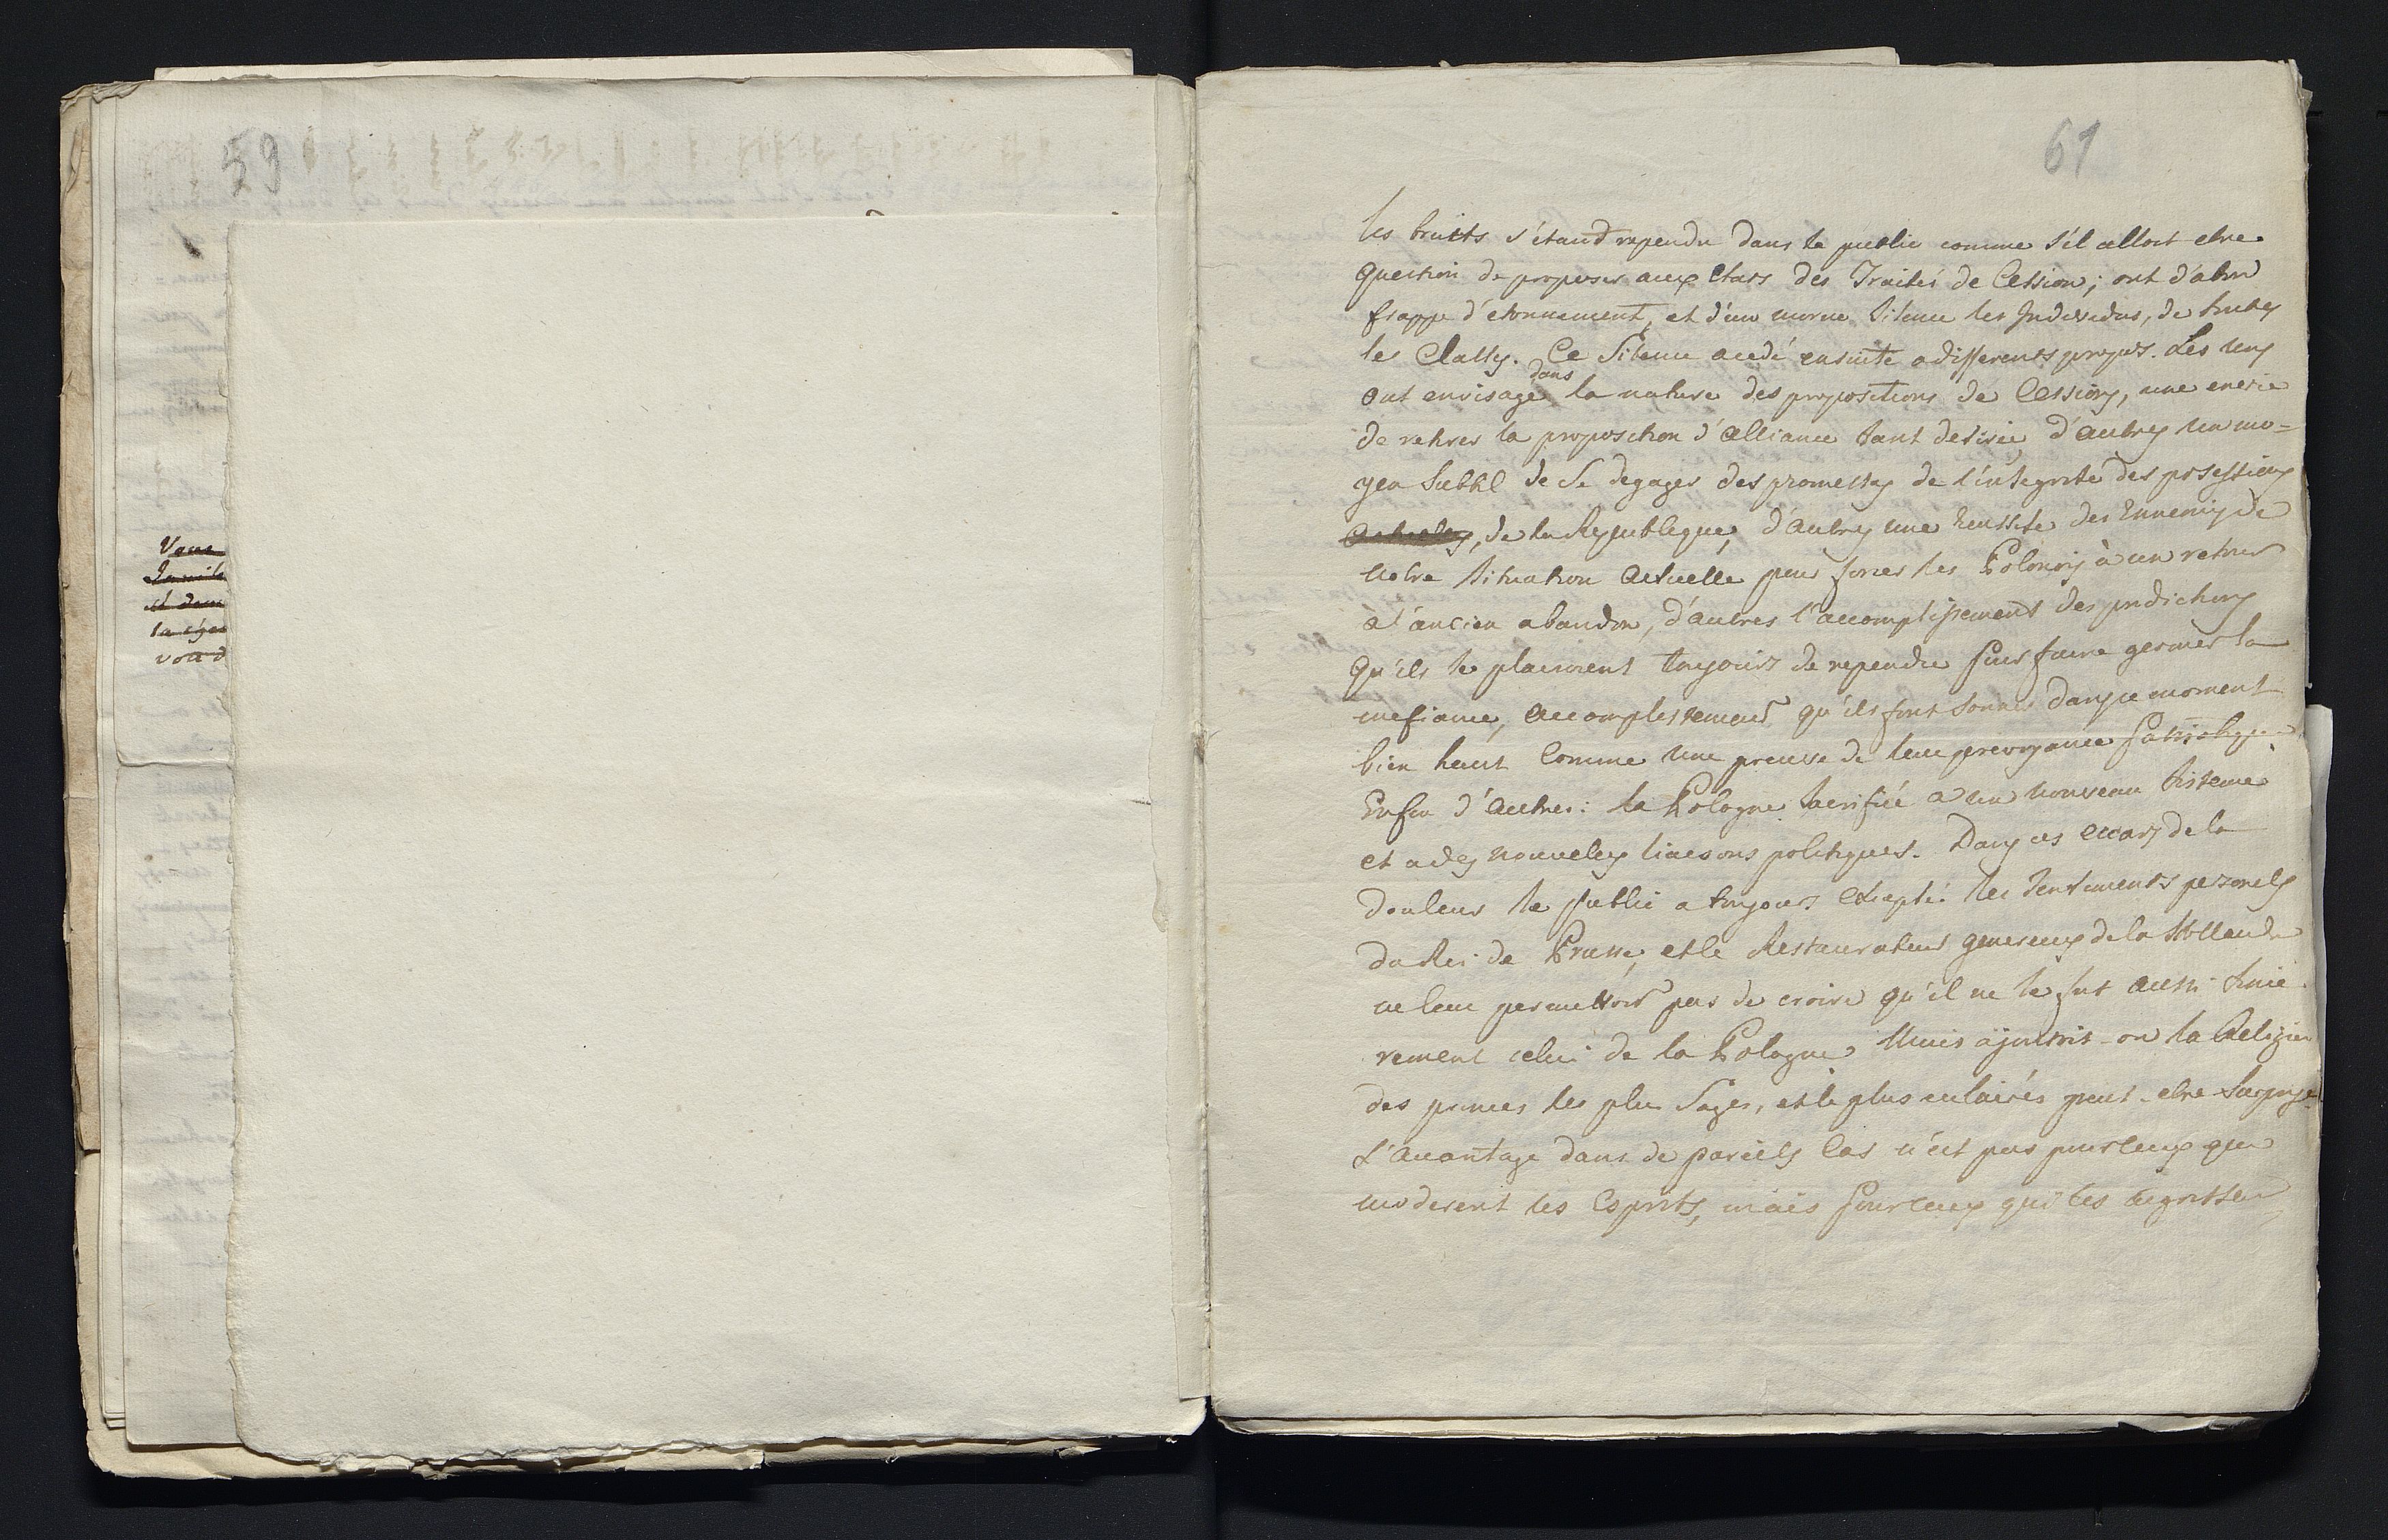 59
61
les bruits s'étand rependu dans le public comme s'il alloit etre
question de proposer aux Etats des Traités de Cession; ont d'abor
frappe d'etonnement, et d'un morne silence les Individus, de toutes
les Classes. Ce Silence a cedé ensuite a differents propos. Les uns
ont envisage dans la nature des propositions de Cessions, une envie
de retirer la proposition d'alliance tant desirée, d'autres un mo=
yen subtil de se degager des promesses de l'integrite des posessions
actuelles, de la Republique, d'autres une reussite des Ennemis de
notre situation actuelle pour forcer les Polonois à un retour
à l'ancien abandon, d'autres l'accomplissement des predictions
qu'ils se plaisoient toujours de rependre pour faire germer la
mefiance, accomplissement qu'ils font sonner dans ce moment
bien haut comme une preuve de leur prevoyance patriotique.
Enfin d'autres: la Pologne sacrifiée a un nouveau sisteme
et a des nouvelles liaisons politiques. Dans ces ecarts de la
douleur le public a toujours excepté les sentiments personels
du Roi de Prusse, et le Restaurateur genereux de la Hollande
ne leur permettoit pas de croire qu'il ne le fut aussi since
rement celui de la Pologne. Mais ajoutoit-on la Religion
des princes les plus sages, et le plus eclairés peut-etre surprise
L'avantage dans de pareils cas n'est pas pour ceux qui
moderent les Esprits, mais pour ceux qui les aigrissent